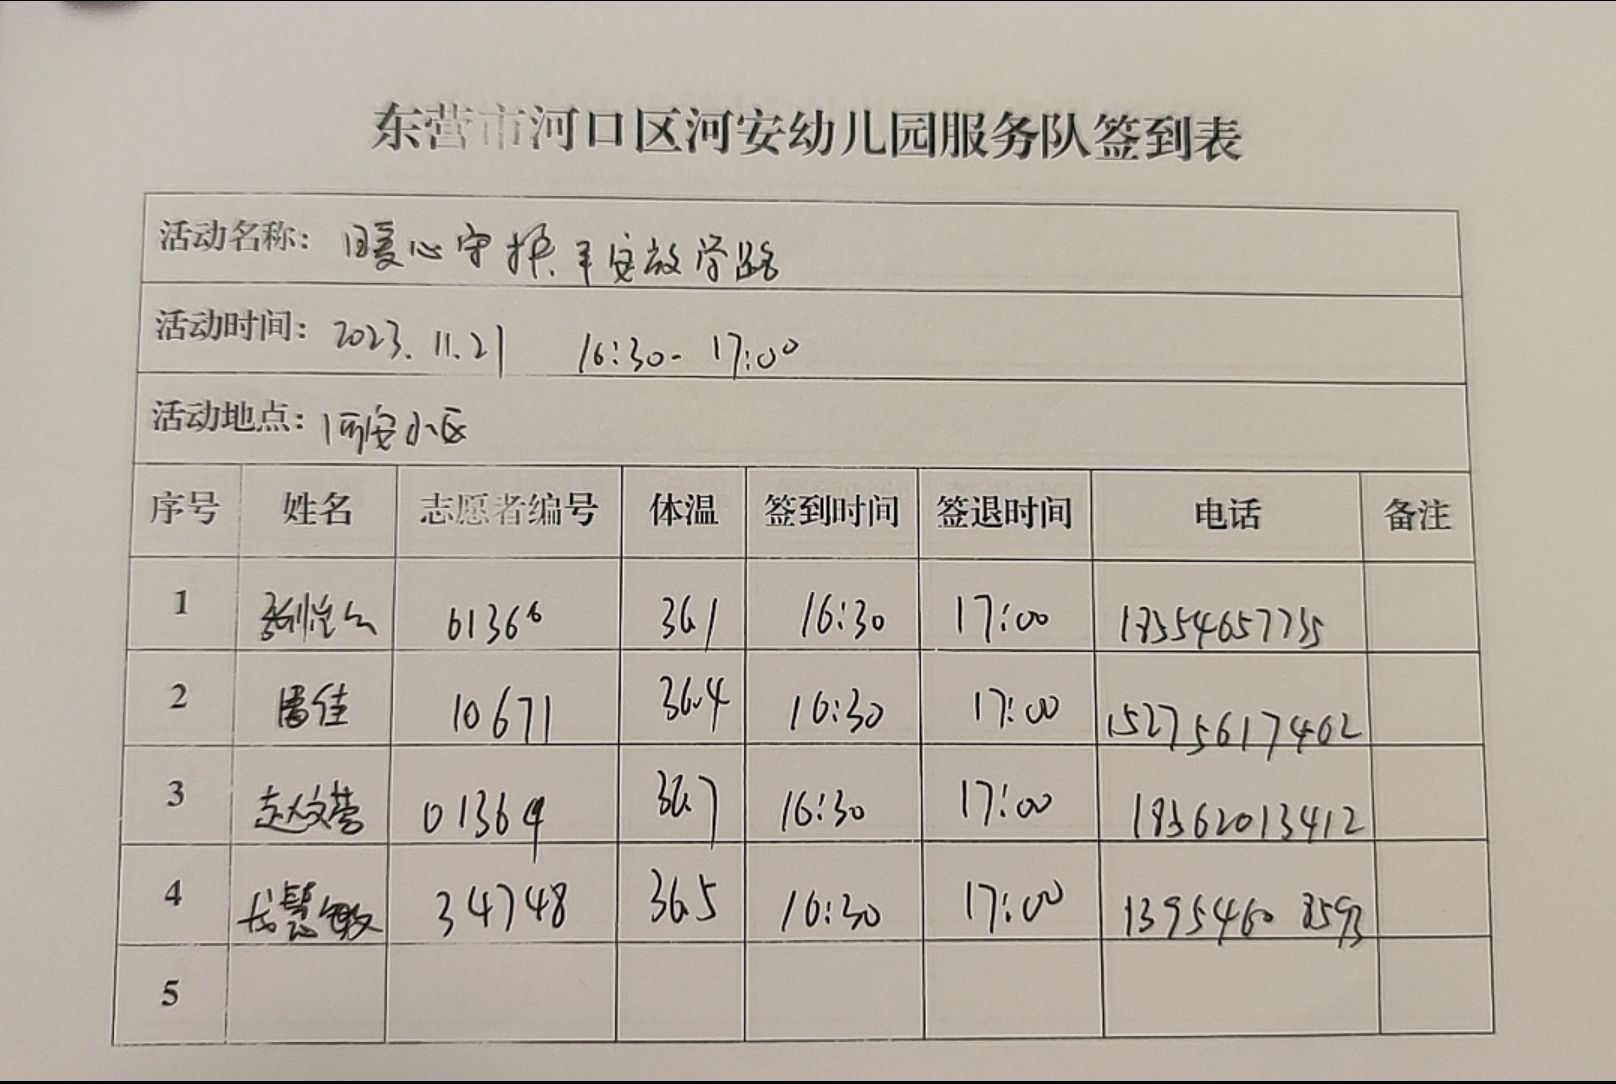 东营市河口区河安幼儿园服务队签到表
活动名称: 暖心守护平安放学路
活动时间: 2023.11.21 16:30-17:00
活动地点: 河安小区
序号 姓名 志愿者编号 体温 签到时间 签退时间 电话 备注
1 61366 36.1 16:30 17:00 18354657735
2 周佳 10671 36.4 16:30 17:00 15275617402
3 赵文营 01364 36.7 16:30 17:00 18362013412
4 慧敏 34748 36.5 16:30 17:00 13954608593
5